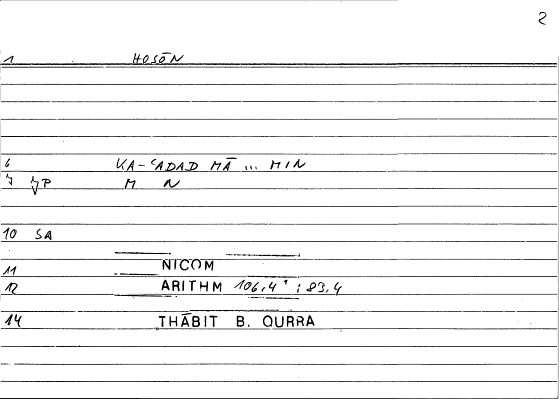 2
1 HOSŌN
6 KA-ʿADAD MĀ ... MIN
M N
10 SA
11 NICOM
12 ARITHM 106,4 ; 83,4
14 THĀBIT B. QURRA